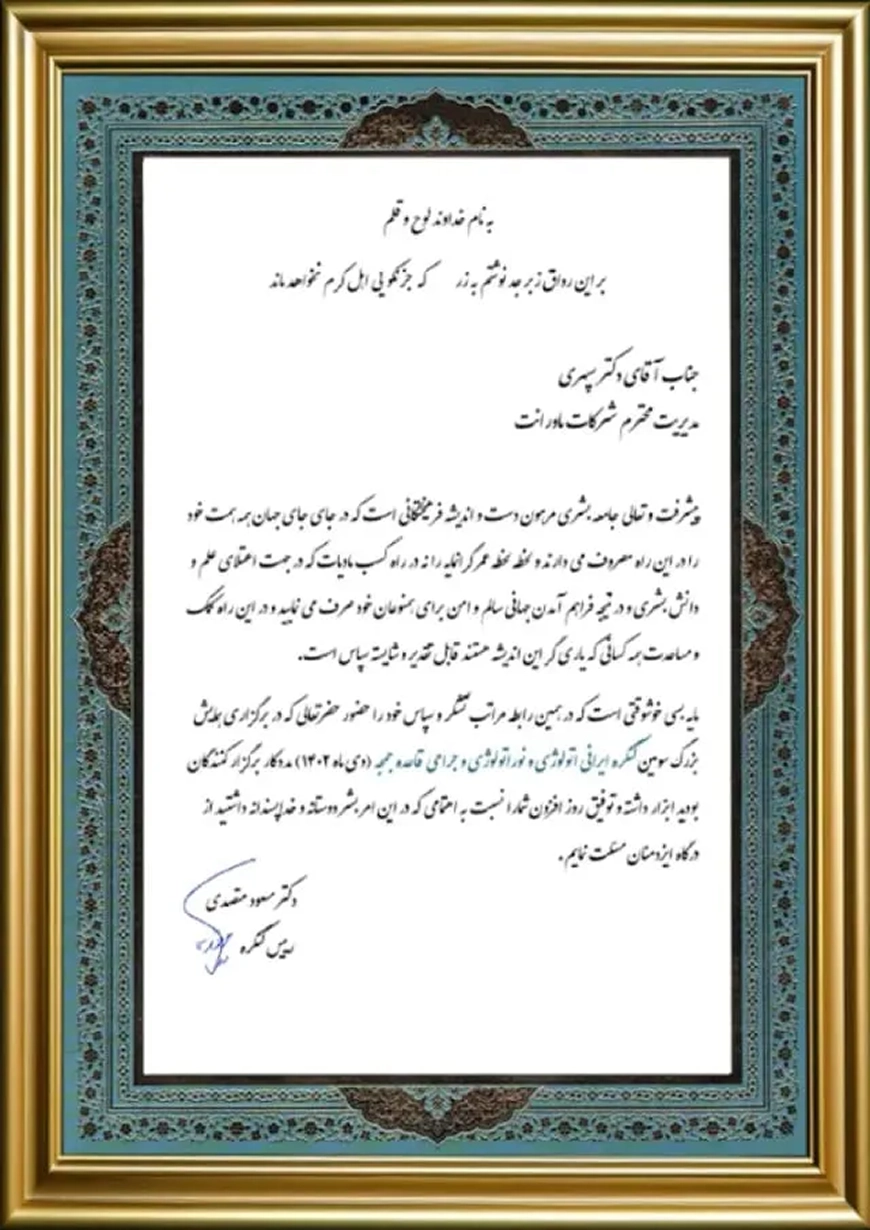 به نام خداوند لوح و قلم
بر این رواق زبرجد نوشتم به زر که جز نکویی اهل کرم نخواهد ماند
جناب آقای دکتر سپهری
مدیریت محترم شرکات ماورانت
پیشرفت و تعالی جامعه بشری مرهون دست و اندیشه فرهیختگانی است که در جای جای جهان همه همت خود
را در این راه مصروف می دارند و لحظه لحظه عمر گرانمایه را نه در راه کسب مادیات که در جهت اعتلای علم و
دانش بشری و در نتیجه فراهم آمدن جهانی سالم و امن برای همنوعان خود صرف می نمایند و در این راه کمک
و مساعدت همه کسانی که یاری گر این اندیشه هستند قابل تقدیر و شایسته سپاس است.
مایه بسی خوشوقتی است که در همین رابطه مراتب تشکر و سپاس خود را حضور حضرتعالی که در برگزاری همایش
بزرگ سومین کنگره ایرانی اتولوژی و نوراتولوژی و جراحی قاعده جمجمه (دی ماه ۱۴۰۲) مددکار برگزار کنندگان
بودید ابراز داشته و توفیق روز افزون شما را نسبت به اهتمامی که در این امر بشر دوستانه و خداپسندانه داشتید از
درگاه ایزد منان مسئلت نمایم .
دکتر مسعود متصدی
رییس کنگره